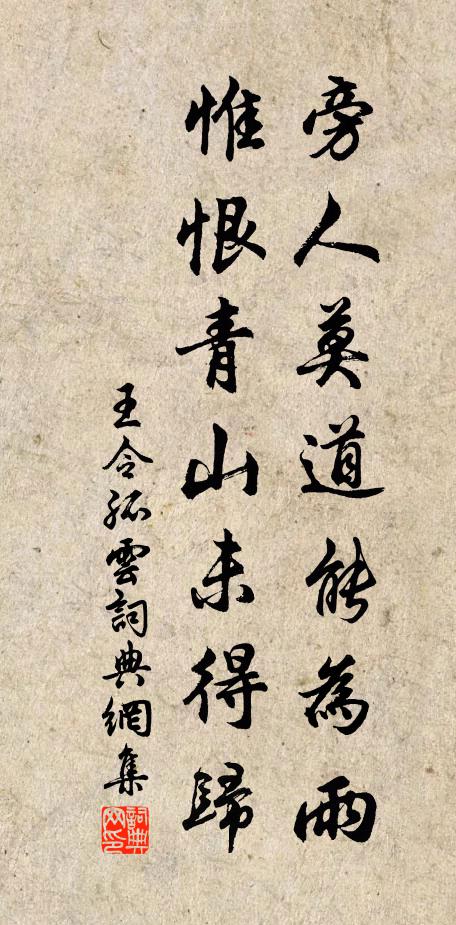 旁人莫道能為雨
惟恨青山未得歸
王令孤雲詞典網集
詞典網印